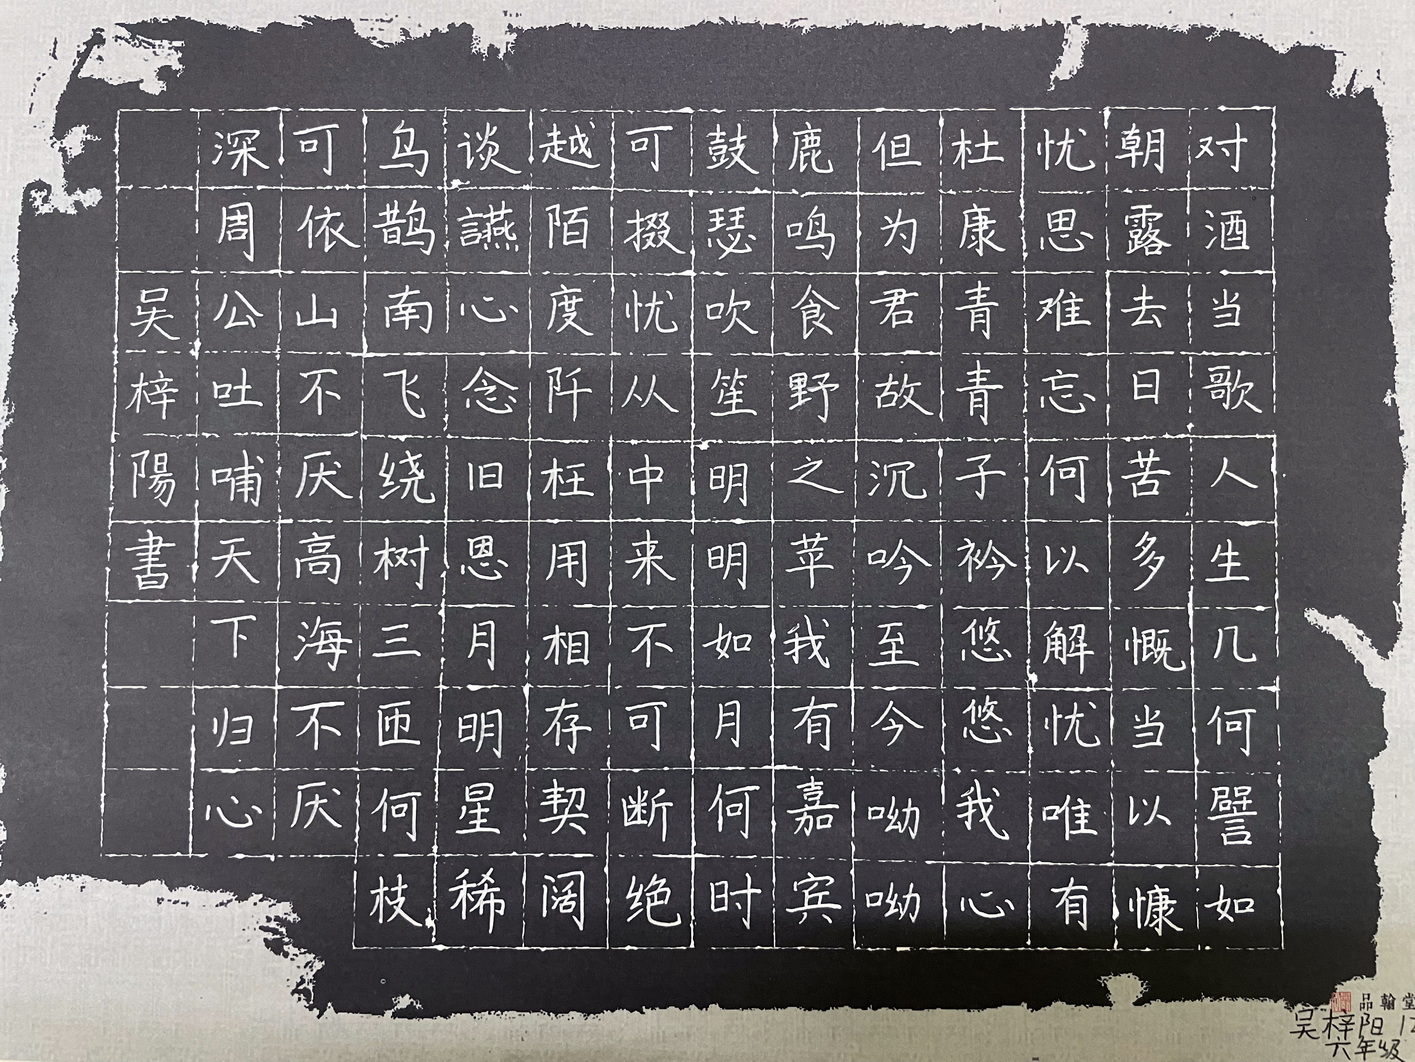 对酒当歌人生几何譬如
朝露去日苦多慨当以慷
忧思难忘何以解忧唯有
杜康青青子衿悠悠我心
但为君故沉吟至今呦呦
鹿鸣食野之苹我有嘉宾
鼓瑟吹笙明明如月何时
可掇忧从中来不可断绝
越陌度阡枉用相存契阔
谈讌心念旧恩月明星稀
乌鹊南飞绕树三匝何枝
可依山不厌高海不厌
深周公吐哺天下归心
吴梓陽書
品翰堂
吴梓阳 12
六年级